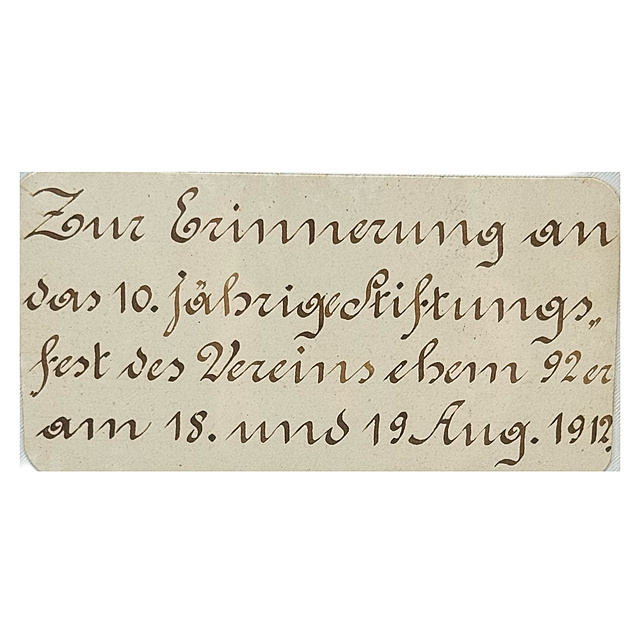 Zur Erinnerung an
das 10. jährige Stiftungs„
fest des Vereins ehem 92er
am 18. und 19 Aug. 1912.